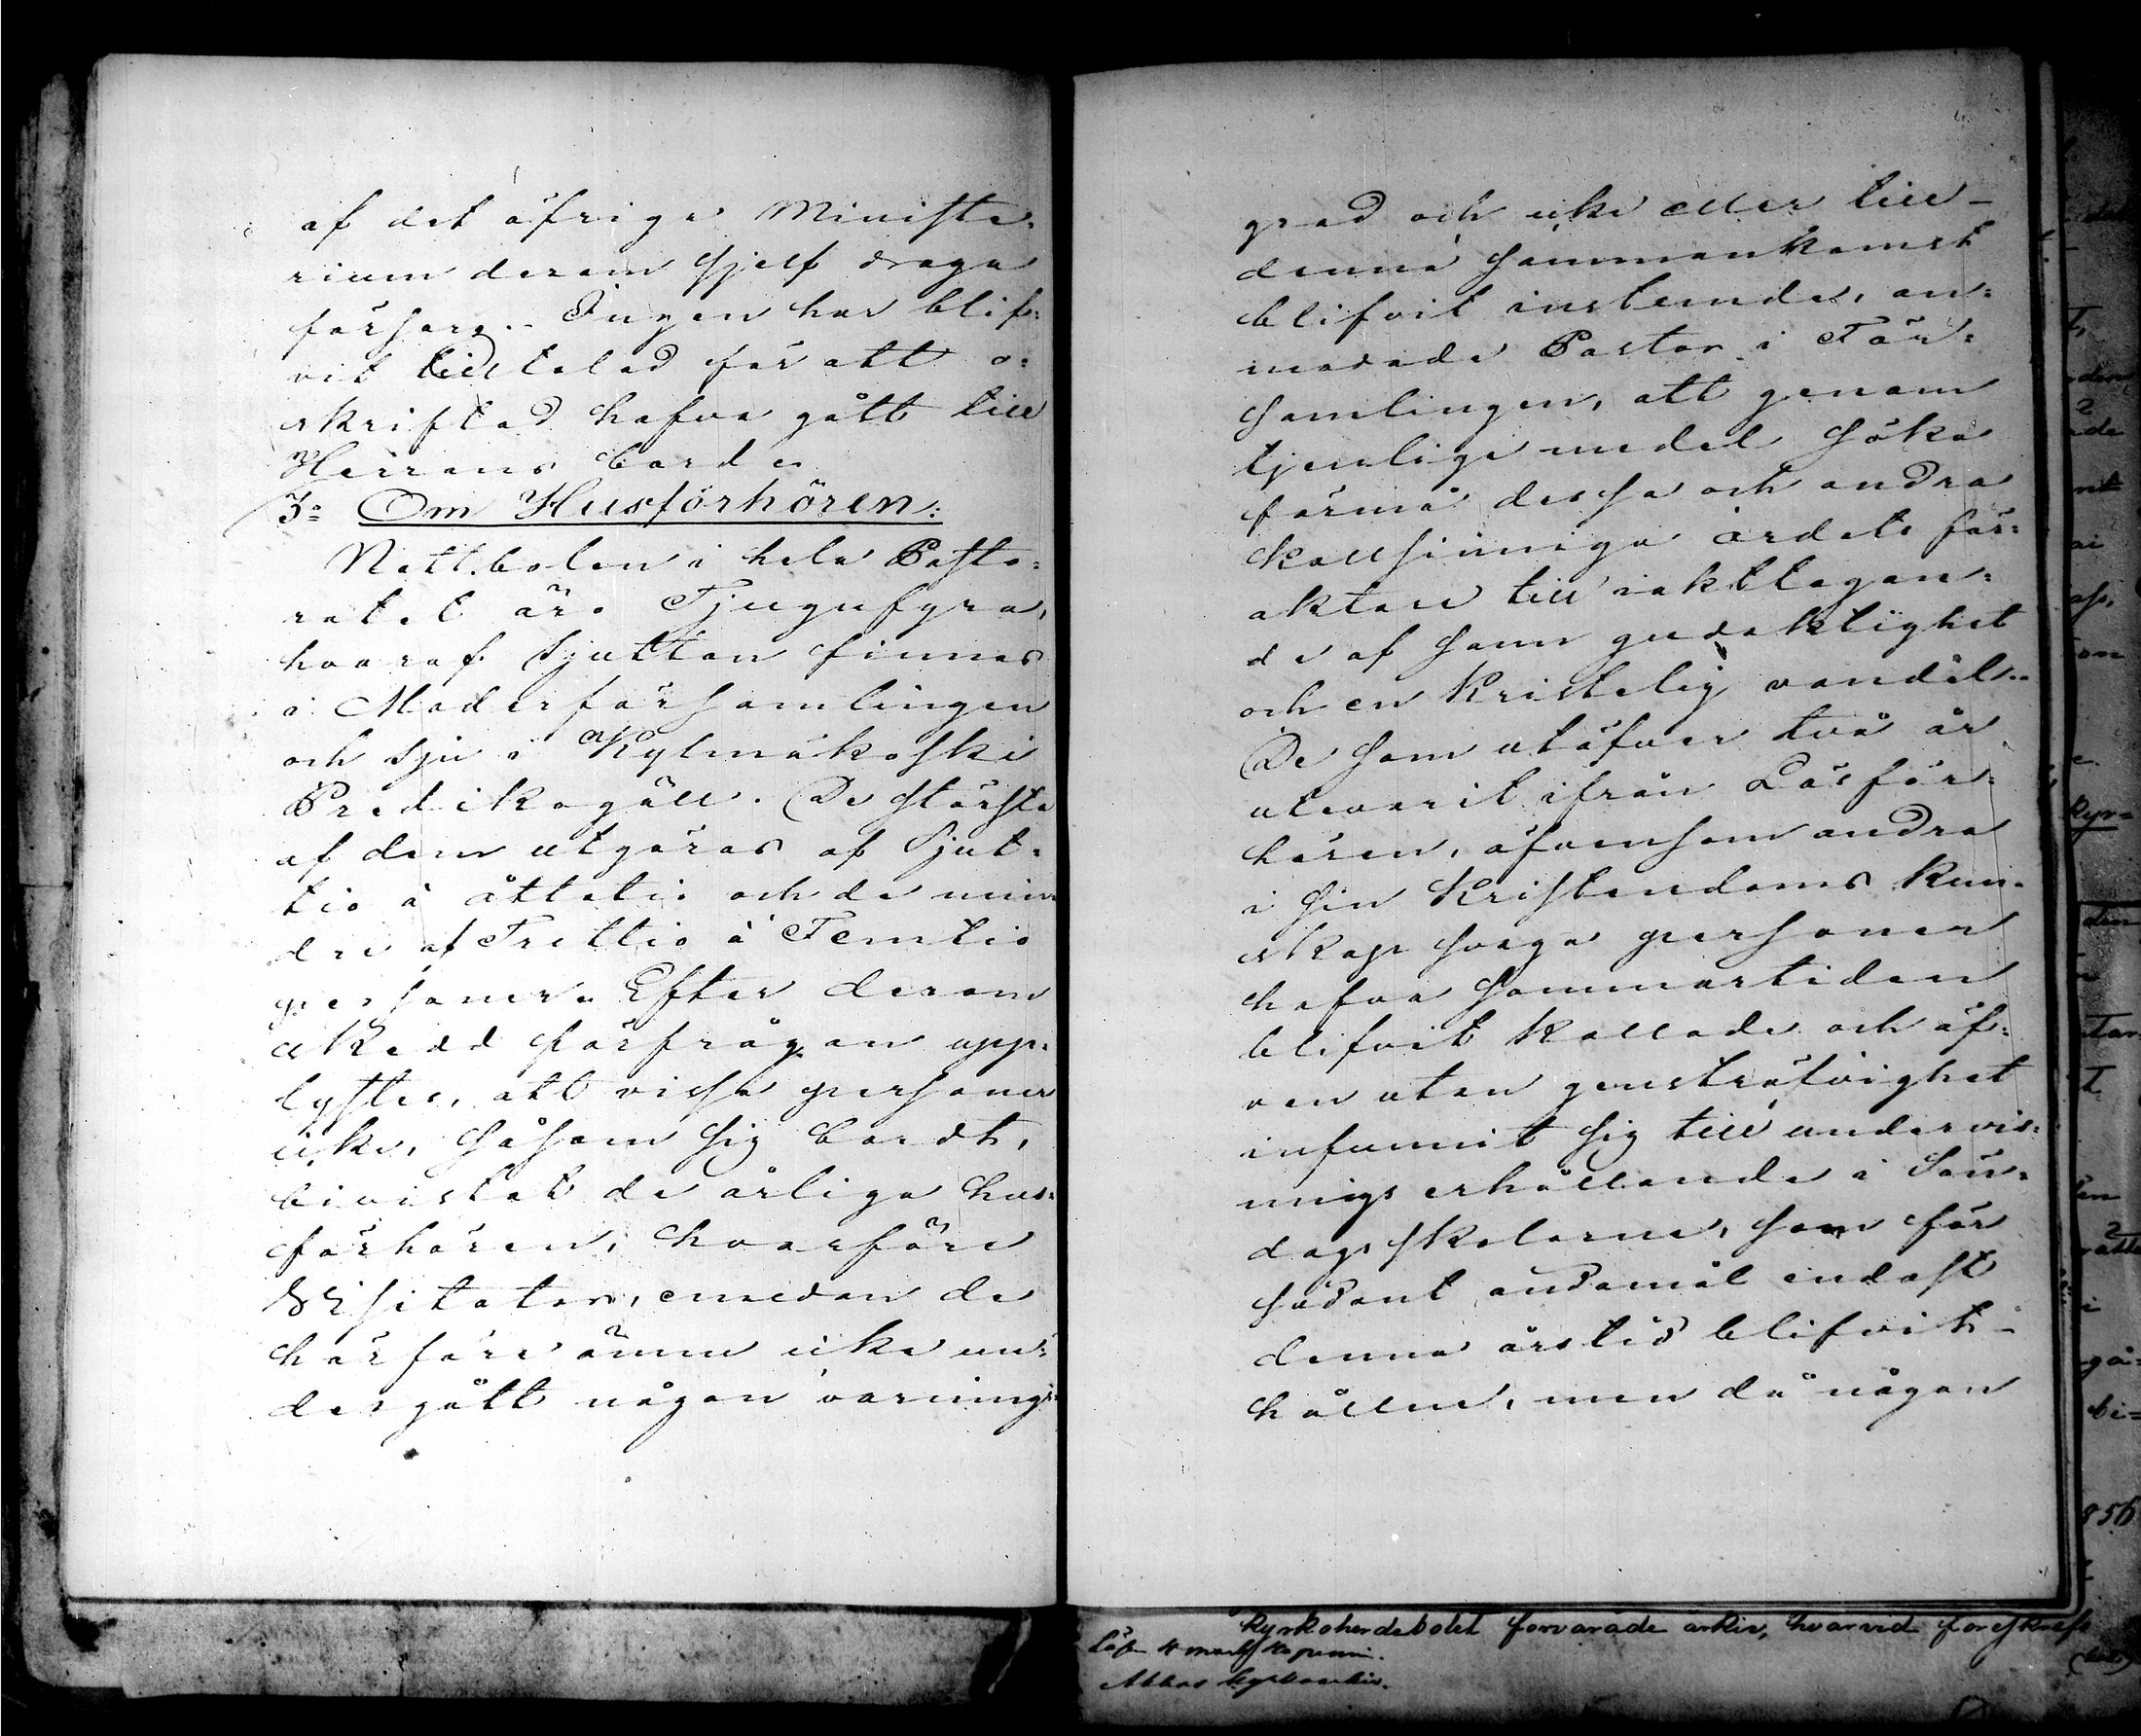 af det öfriga Ministe=
rium derom sjelf draga
försorg. Ingen har blif=
vit tilltalad för att o=
skriftad hafva gått till
Herrans bord.
3o Om Husförhören:
Nattbolen i hela Pasto=
ratet äro Tjugufyra,
hvaraf sjutton finnas
i Moderförsamlingen
och sju i Kylmäkoski
Predikogäll. De största
af dem utgöras af Sjut=
tio à åttatio och de min
dre af Trettio à Femtio
personer. Efter derom
skedd förfrågan upp=
lystes, att vissa personer
icke, såsom sig bordt,
bivistat de årliga hus=
förhören, hvarföre
Visitator, emedan de
härföre ännu icke un=
dergått någon varnings=
grad och icke eller till-
denna sammankomst
blifvit instemde, an=
modade Pastor i För=
samlingen, att genom
tjenliga medel söka
förmå dessa och andra
kallsinniga ordets för=
aktare till iakttagan=
de af sann gudaktighet
och en Kristelig vandel.
De som utöfver två år
utevarit ifrån Läsför=
hören, äfvensom andra
i sin Kristendoms kun=
skap svaga personer
hafva sommartiden
blifvit kallade och äf=
ven utan gensträfvighet
infunnit sig till undervis=
nings erhållande i Sön=
dagsskolorna, som för
sådant ändamål endast
denna årstid blifvit
hållne, men då någon
Kyrkoherdebolet förvarade arkiv, hvarvid föreskrefs
Akkas kyrkoarkiv.
856